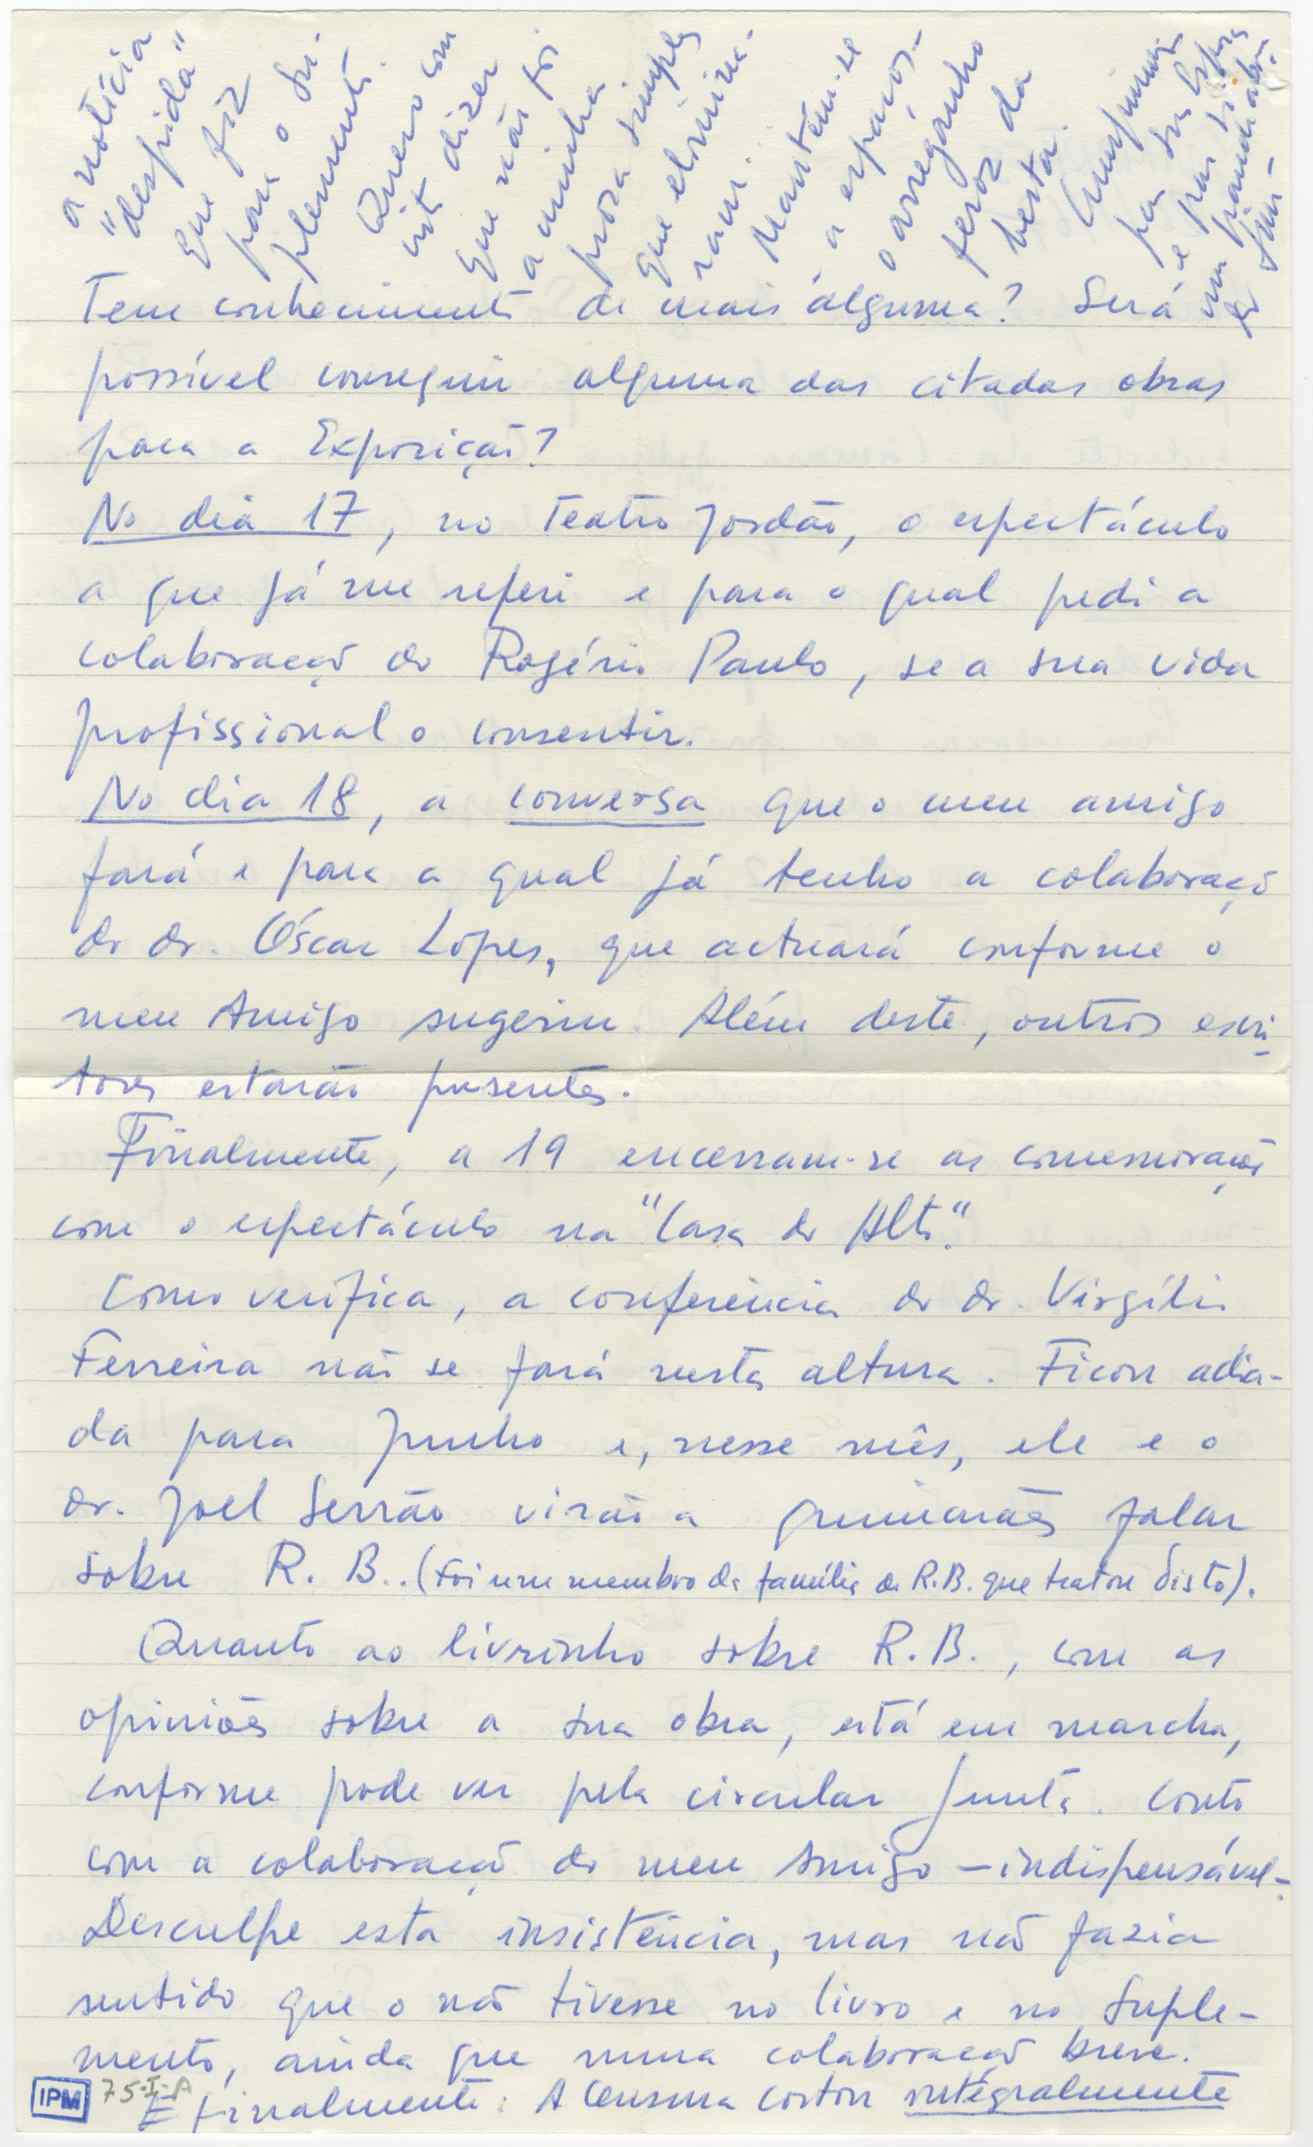 Tem conhecimento de mais alguma? Será
possível conseguir alguma das citadas obras
para a Exposição?
No dia 17, no Teatro Jordão, o espectáculo
a que já me referi e para o qual pedi a
colaboração do Rogério Paulo, se a sua vida
profissional o consentir.
No dia 18, a conversa que o meu amigo
fará e para a qual já tenho a colaboração
do dr. Óscar Lopes, que actuará conforme o
meu Amigo sugeriu. Além deste, outros escri-
tores estarão presentes.
Finalmente, a 19 encerram-se as comemorações
com o espectáculo na "Casa do Alto".
Como verifica, a conferência do dr. Virgílio
Ferreira não se fará nesta altura. Ficou adia-
da para Junho e, nesse mês, ele e o
dr. Joel Serrão virão a Guimarães falar
sobre R. B.. (Foi um membro da família de R.B. que tratou disto).
Quanto ao livrinho sobre R.B., com as
opiniões sobre a sua obra, está em marcha,
conforme pode ver pela circular junta. Conto
com a colaboração do meu Amigo – indispensável –.
Desculpe esta insistência, mas não fazia
sentido que o não tivesse no livro e no Suple-
mento, ainda que numa colaboração breve.
E finalmente: A Censura cortou integralmente
a notícia
"despida"
que fiz
para o Su-
plemento.
Quero com
isto dizer
que não foi
a minha
prosa simples
que elimina-
ram.
Mantém-se
a espaços
o arreganho
feroz da
besta.
IPM
75-I-A